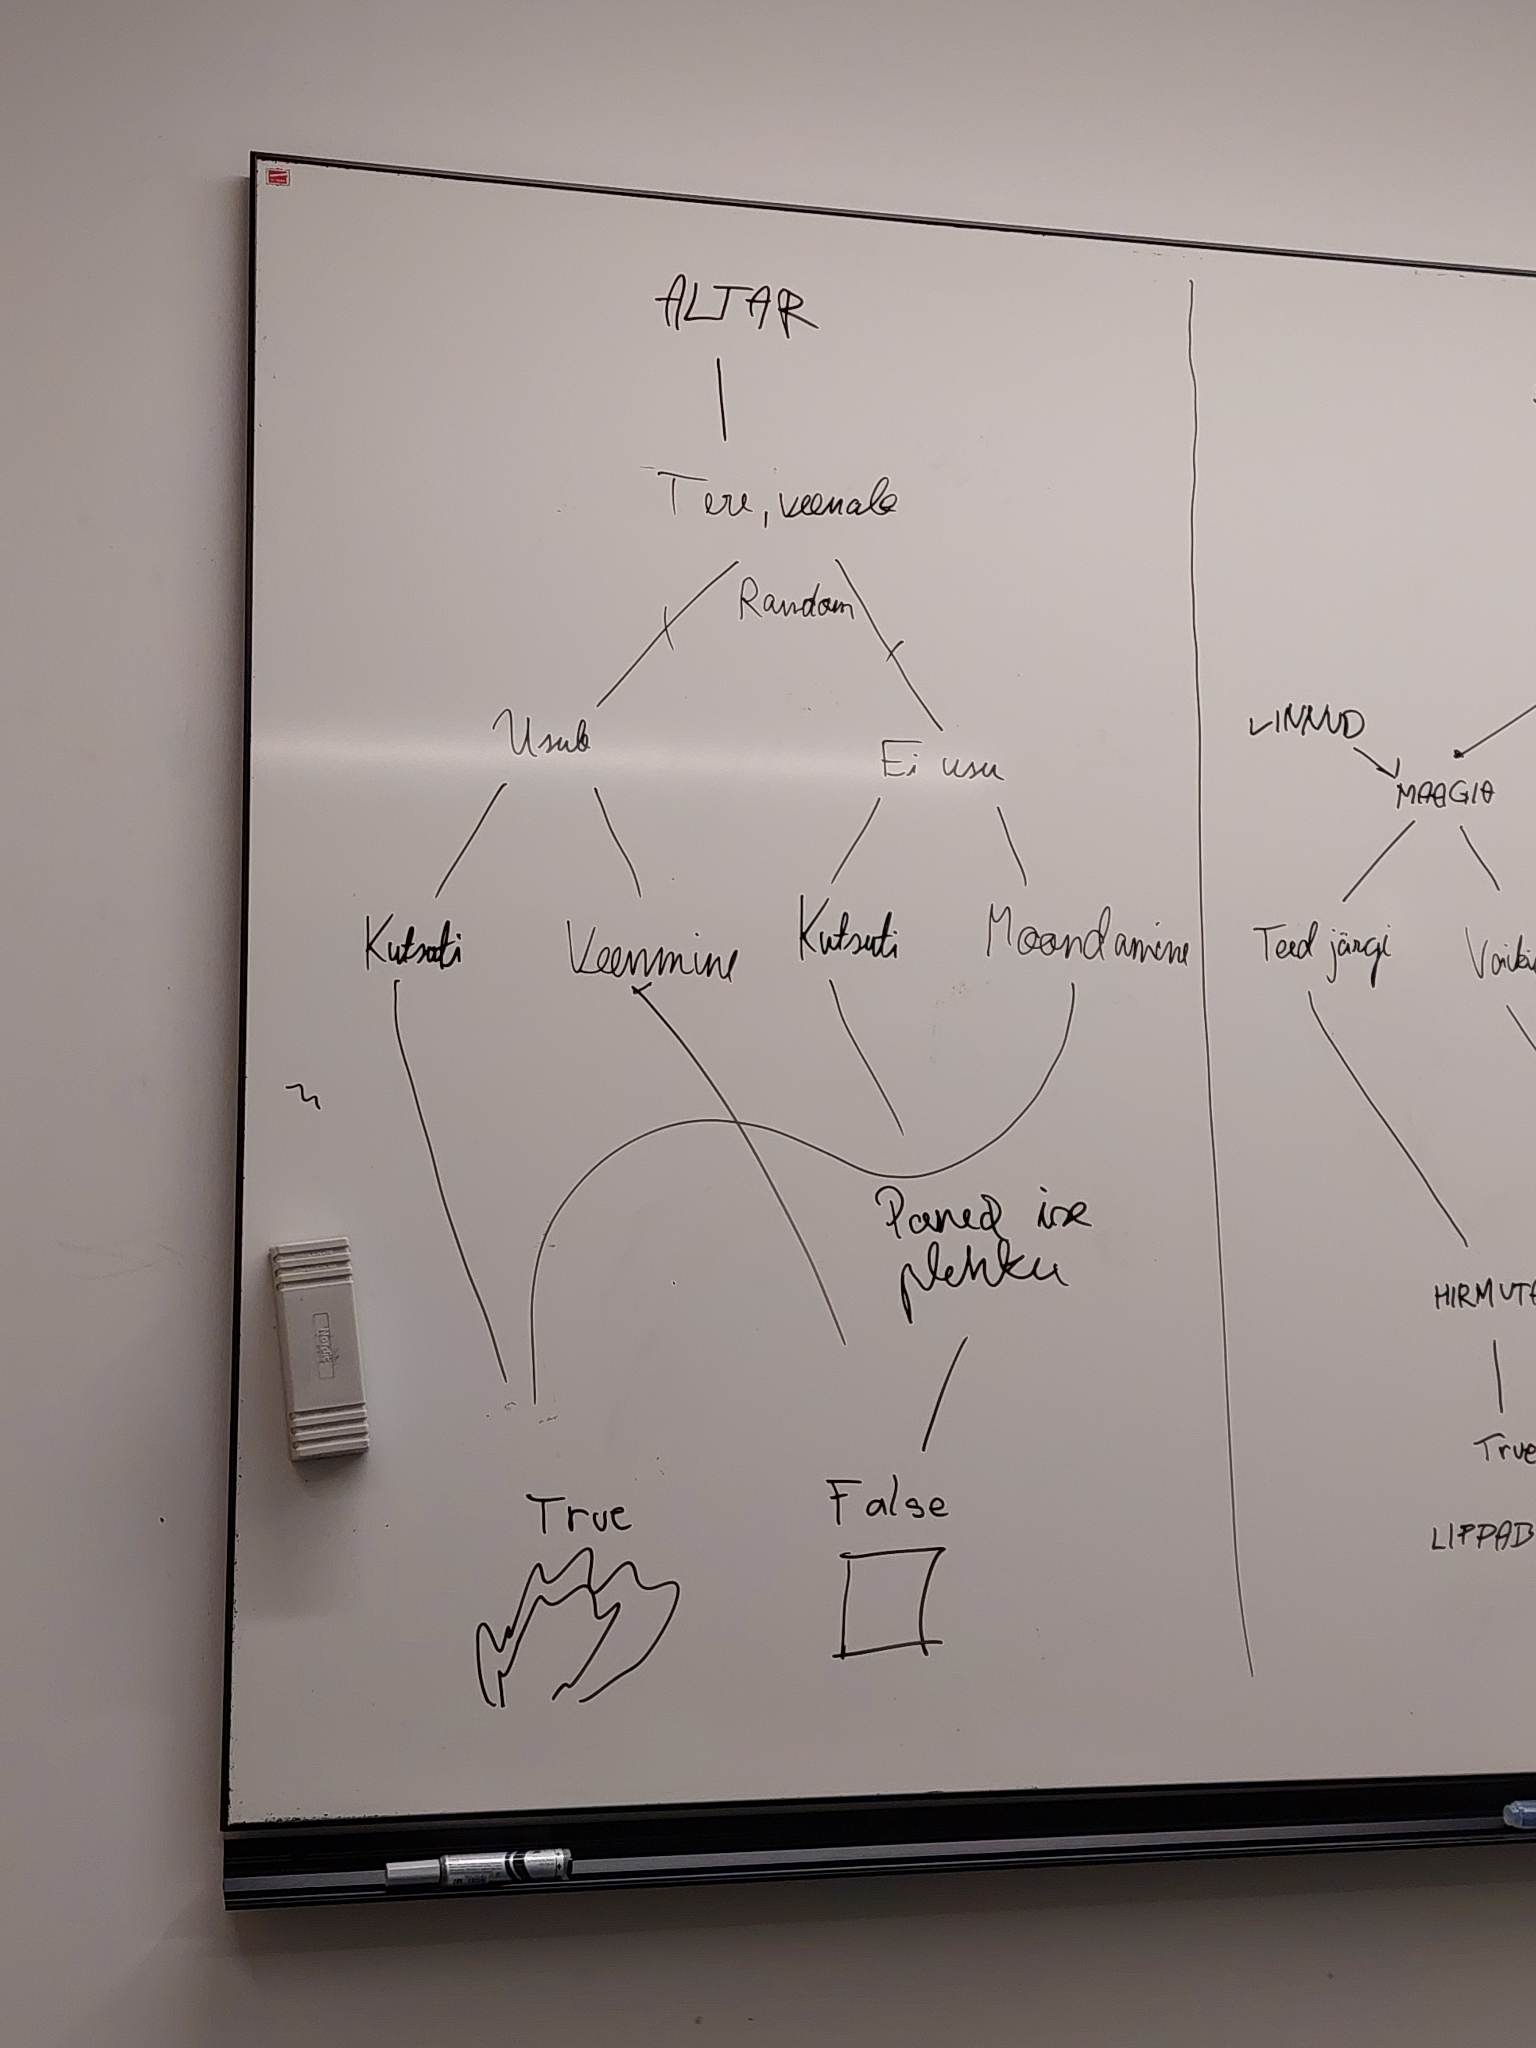 ALTAR
Tere, veenab
Random
Usub
Ei usu
Kutsuti
Veenmine
Kutsuti
Moondamine
Paned ise
plehku
True
False
LINNUD
MAAGIA
Teed järgi
HIRMUTA
True